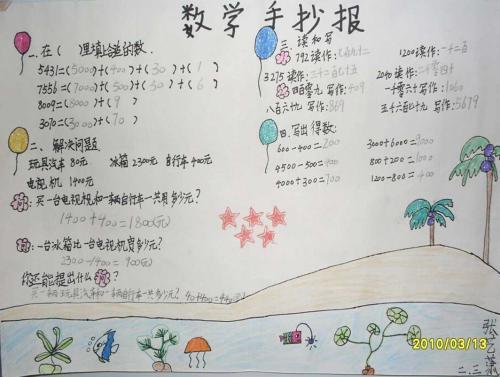 数学手抄报
一.在( )里填恰当的数.
5431=(5000)+(400)+(30)+(1)
7556=(7000)+(500)+(50)+(6)
8009=(8000)+(9)
3070=(3000)+(70)
二. 解决问题
玩具汽车 80元 冰箱 2300元 自行车 400元
电视机 1400元
:买一台电视机和一辆自行车一共用多少元?
1400+400=1800(元)
:一台冰箱比一台电视机贵多少元?
2300-1400=900(元)
你还能提出什么 ?
买一辆玩具汽车和一辆自行车一共多少元?
三.读和写
792读作:七百九十二 1200读作:一千二百
3275读作:三千二百七十五 2040读作:二千零四十
四百零九 写作:409 一千零六十写作:1060
八百六十九 写作:869 五千六百七十九 写作:5679
四.写出得数:
600-400=200 3000+6000=9000
4500-500=400 800+200=1000
4000+300=700 1200-800=400
二.三
2010/03/13